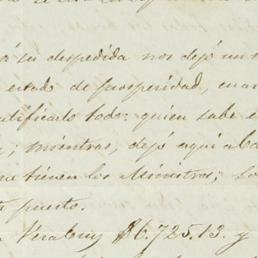 á su despedida nos dejó un
estado de prosperidad, cuan
ratificarlo todo: quien sabe e
; mientras, dejó aquí
que tienen los Ministros; Lo
puerto.
Veracruz $6.725.13. y